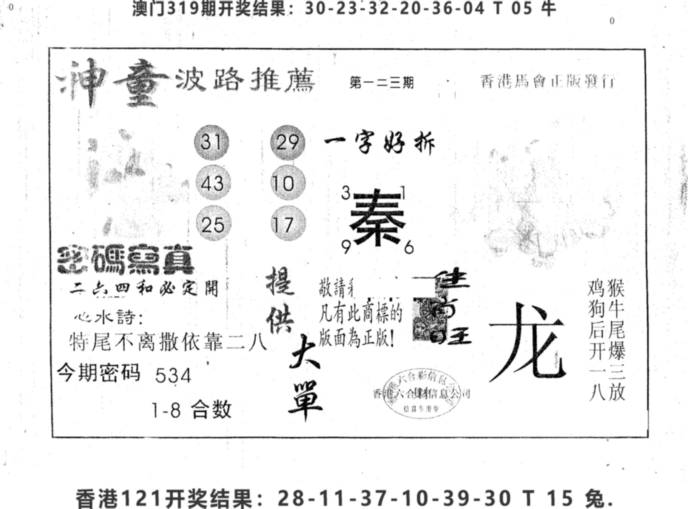 澳门319期开奖结果：30-23-32-20-36-04 T 05 牛
神童波路推薦
第一二三期
香港馬會正版發行
31 29
43 10
25 17
一字好拆
3 1
秦
9 6
密碼寫真
二六四和必定開
心水詩:
特尾不离撒依靠二八
今期密码 534
1-8 合数
提供
大單
敬請
凡有此商標的
版面為正版!
龙
猴牛尾爆三放
鸡狗后开一八
香港121开奖结果：28-11-37-10-39-30 T 15 兔.